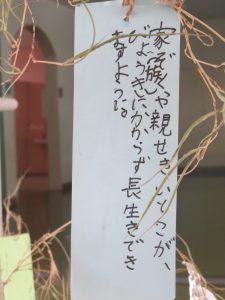 家族や親せきいとこが、
びょうきにかからず長生きでき
ますような